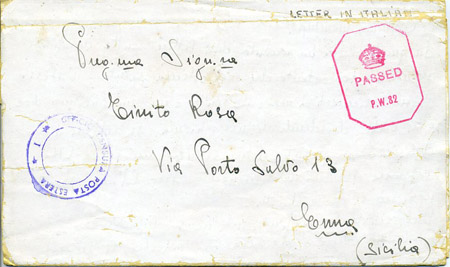 LETTER IN ITALIAN
PASSED
P.W. 82
Preg.ma Sign.na
Rosa
Via Porto Salvo 13
Enna
(Sicilia)
CENSURA POSTA ESTERA
1